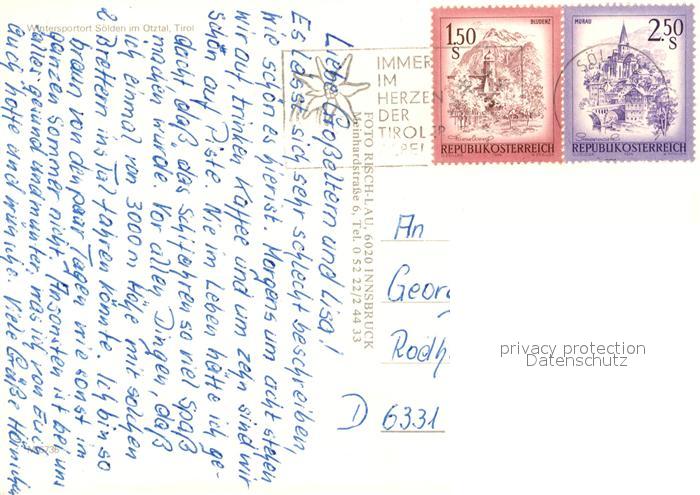 Wintersportort Sölden im Ötztal, Tirol
Liebe Großeltern und Lisa!
Es lässt sich sehr schlecht beschreiben,
wie schön es hier ist. Morgens um acht stehen
wir auf, trinken Kaffee und um zehn sind wir
schon auf Piste. Nie im Leben hätte ich ge-
dacht daß das Schifahren so viel Spaß
machen würde. Vor allen Dingen, daß
ich einmal von 3000 m Höhe mit solchen
2 Brettern ins Tal fahren könnte. Ich bin so
braun von den paar Tagen wie sonst im
ganzen Sommer nicht. Ansonsten ist bei uns
alles gesund und munter, was ich von Euch
auch hoffe und wünsche. Viele Grüße
FOTO RISCH-LAU, 6020 INNSBRUCK
Meinhardstraße 6, Tel. 0 52 22/2 44 33
IMMER
IM
HERZEN
DER
TIROLER
1.50
S
BLUDENZ
REPUBLIK ÖSTERREICH
2.50
S
MURAU
REPUBLIK ÖSTERREICH
An
Georg
Rodh
D 6331
privacy protection
Datenschutz